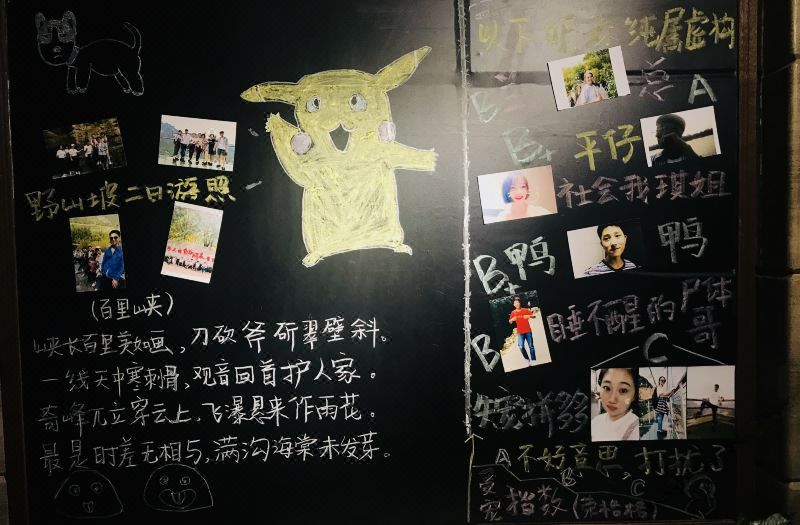 野山坡二日游照
(百里峡)
峡长百里美如画，刀砍斧斫翠壁斜。
一线天中寒刺骨，观音回首护人家。
奇峰兀立穿云上，飞瀑悬来作雨花。
最是时差无相与，满沟海棠未发芽。
以下 纯属虚构
B 总 A
B+ 平仔
社会我琪姐
B+ 鸭 鸭
B 睡不醒的尸体哥
C
失宠拼多
A 不好意思 打扰了
B C
受宠指数